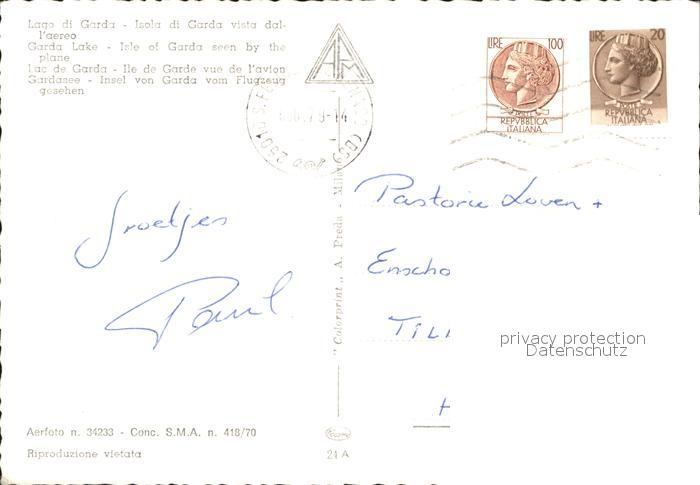 Lago di Garda - Isola di Garda vista dal-
l'aereo
Garda Lake - Isle of Garda seen by the
plane
Lac de Garda - Ile de Garde vue de l'avion
Gardasee - Insel von Garda vom Flugzeug
gesehen
LIRE 100
REPVBBLICA
ITALIANA
LIRE 20
REPVBBLICA
ITALIANA
Groetjes
Paul
"Colorprint" A. Preda - Mila
Pastorie Loven +
Enscho
TIL
H
privacy protection
Datenschutz
Aerfoto n. 34233 - Conc. S.M.A. n. 418/70
Riproduzione vietata
21 A